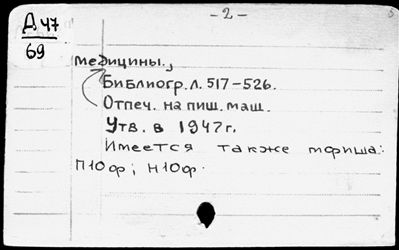 - 2 -
Д 47
69
медицины.,
Библиогр. л. 517-526.
Отпеч. на пиш. маш.
Утв. в 1947г.
Имеется также мфиша:
П10ф; Н10ф.